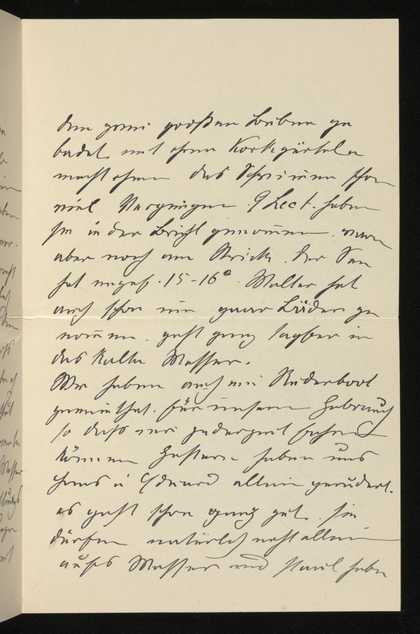 den zwei großen Buben ge
badet mit ihren Korkgürteln
macht ihnen das Schwimmen schon
viel Vergnügen 9 Lect. haben
sie in der Bucht genommen. waren
aber noch am Strick. Der See
hat ungef. 15-16° Walter hat
auch schon ein paar Bäder ge
nommen. geht ganz tapfer in
das kalte Wasser.
Wir haben auch ein Ruderboot
gemiethet. für unsern Gebrauch
so dass wir jederzeit fahren
können Gestern haben uns
Hans u Eduard allein gerudert.
es geht schon ganz gut. Sie
dürfen natürlich nicht allein
aufs Wasser und haben